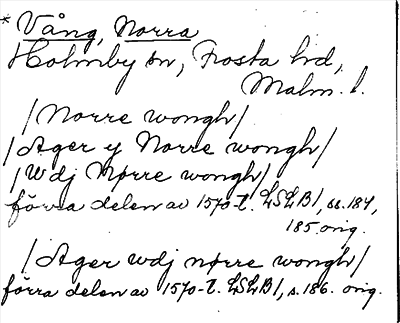 * Vång, Norra
Holmby sn, Frosta hd,
Malm. l.
/Norre wongh/
/Ager y Norre wongh/
/Wdj Nørre wongh/
förra delen av 1570-t. LSLB/, ss. 184,
185 orig.
/Ager wdj nørre wongh/
förra delen av 1570-t. LSLB/, s. 186. orig.